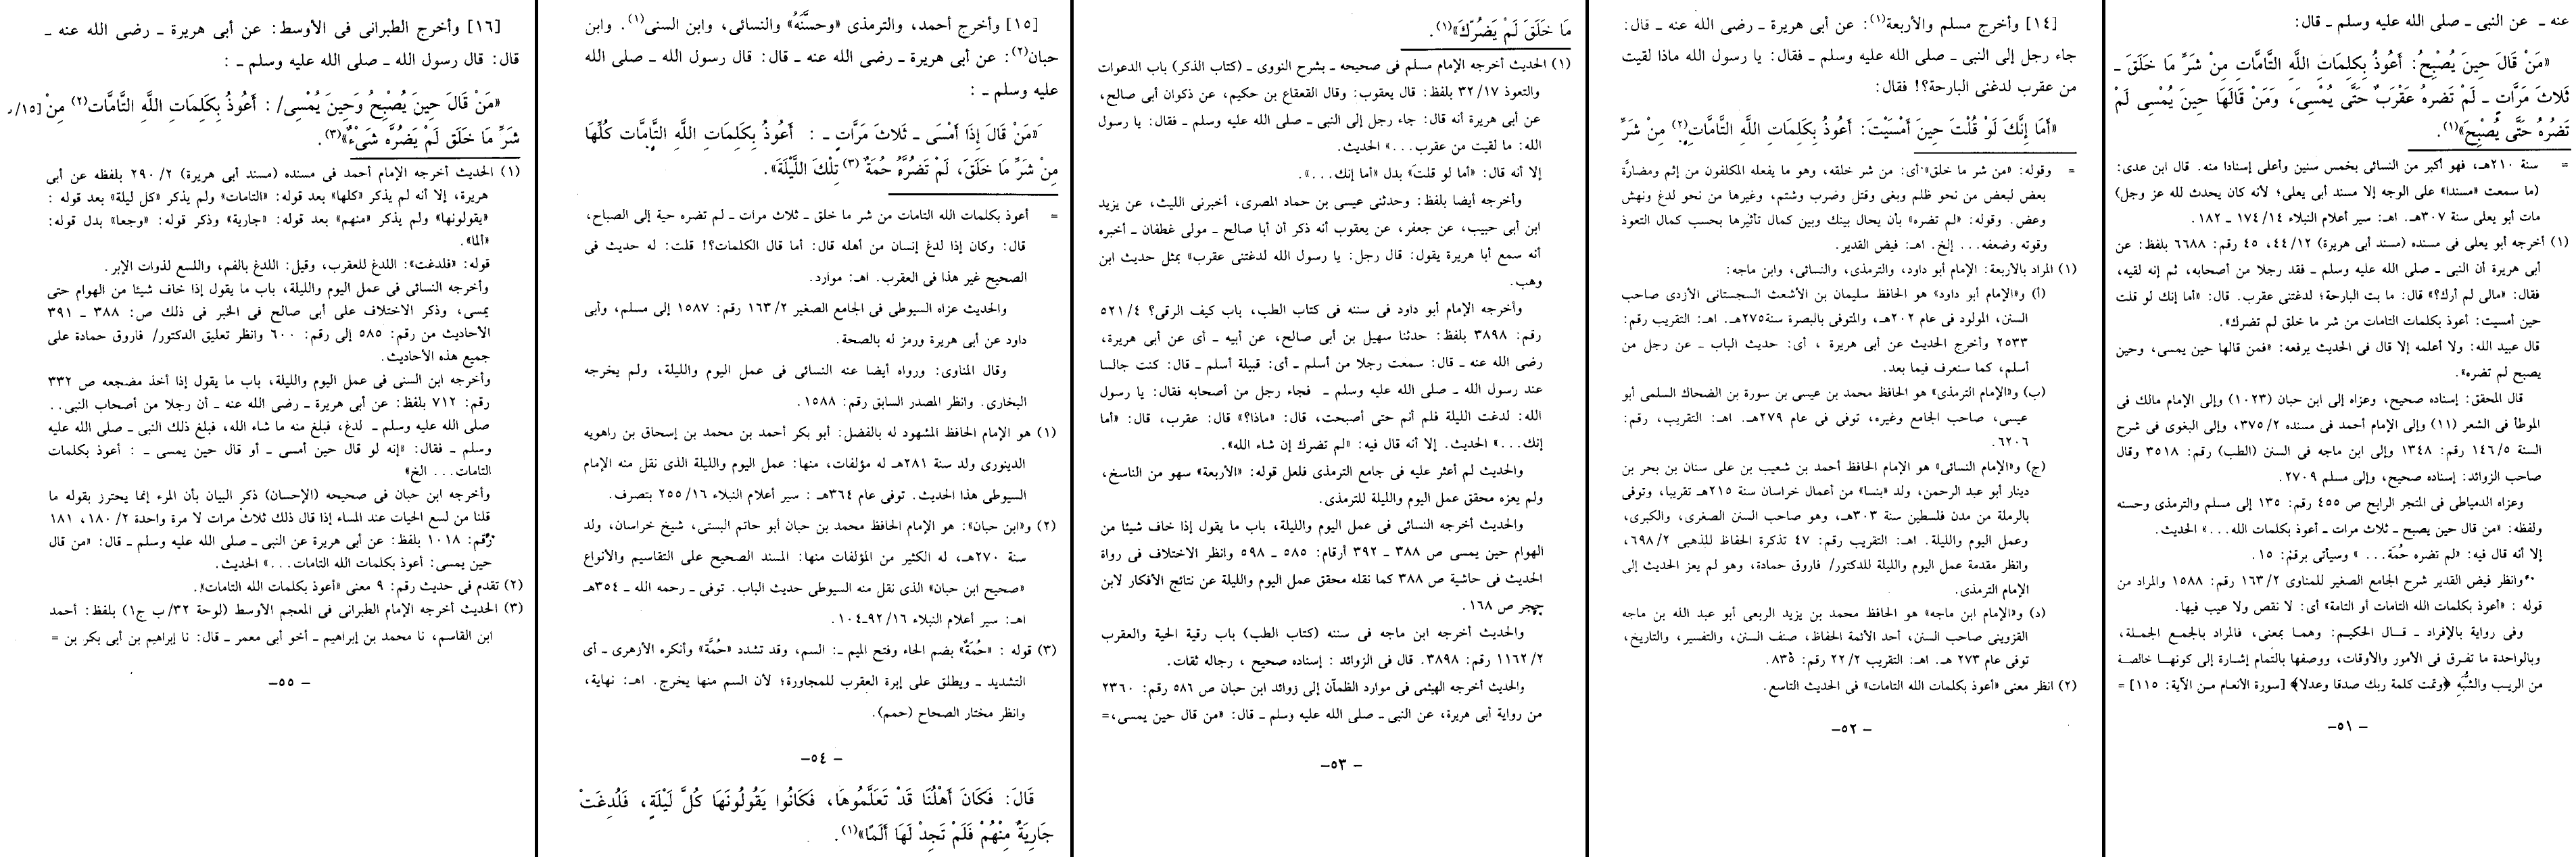 عنه ـ عن النبى ـ صلى الله عليه وسلم ـ قال:
«مَنْ قَالَ حِينَ يُصْبِحُ: أَعُوذُ بِكَلِمَاتِ اللَّهِ التَّامَّاتِ مِنْ شَرِّ مَا خَلَقَ ـ
ثَلاثَ مَرَّاتٍ ـ لَمْ تَضرهُ عَقْرَبٌ حَتَّى يُمْسِىَ، وَمَنْ قَالَهَا حِينَ يُمْسِى لَمْ
تَضُرُهُ حَتَّى يُصْبِحَ»(١).
= سنة ٢١٠هـ، فهو أكبر من النسائى بخمس سنين وأعلى إسنادا منه. قال ابن عدى:
(ما سمعت «مسندا» على الوجه إلا مسند أبى يعلى؛ لأنه كان يحدث لله عز وجل)
مات أبو يعلى سنة ٣٠٧هـ. اهـ: سير أعلام النبلاء ١٧٤/١٤ ـ ١٨٢.
(١) أخرجه أبو يعلى فى مسنده (مسند أبى هريرة) ٤٤/١٢، ٤٥ رقم: ٦٦٨٨ بلفظ: عن
أبى هريرة أن النبى ـ صلى الله عليه وسلم ـ فقد رجلا من أصحابه، ثم إنه لقيه،
فقال: «مالى لم أرك؟» قال: ما بت البارحة؛ لدغتنى عقرب. قال: «أما إنك لو قلت
حين أمسيت: أعوذ بكلمات التامات من شر ما خلق لم تضرك».
قال عبيد الله: ولا أعلمه إلا قال فى الحديث يرفعه: «فمن قالها حين يمسى، وحين
يصبح لم تضره».
قال المحقق: إسناده صحيح، وعزاه إلى ابن حبان (١٠٢٣) وإلى الإمام مالك فى
الموطأ فى الشعر (١١) وإلى الإمام أحمد فى مسنده ٣٧٥/٢، وإلى البغوى فى شرح
السنة ١٤٦/٥ رقم: ١٣٤٨ وإلى ابن ماجه فى السنن (الطب) رقم: ٣٥١٨ وقال
صاحب الزوائد: إسناده صحيح، وإلى مسلم ٢٧٠٩.
وعزاه الدمياطى فى المتجر الرابح ص ٤٥٥ رقم: ١٣٥ إلى مسلم والترمذى وحسنه
ولفظه: «من قال حين يصبح ـ ثلاث مرات ـ أعوذ بكلمات الله...» الحديث.
إلا أنه قال فيه: «لم تضره حُمَة... » وسيأتى برقم: ١٥.
وانظر فيض القدير شرح الجامع الصغير للمناوى ١٦٣/٢ رقم: ١٥٨٨ والمراد من
قوله : «أعوذ بكلمات الله التامات أو التامة» أى: لا نقص ولا عيب فيها.
وفى رواية بالإفراد ـ قـال الحكيـم: وهمـا بمعنى، فالمراد بالجمـع الجملـة،
وبالواحدة ما تفـرق فى الأمور والأوقات، ووصفها بالتمام إشـارة إلى كونهـا خالصـة
من الريـب والشُّبَهِ ﴿وتمت كلمة ربك صدقا وعدلا﴾ [سورة الأنعـام مـن الآية: ١١٥] =
ـ ٥١ـ
[١٤] وأخرج مسلم والأربعة(١): عن أبى هريرة ـ رضى الله عنه ـ قال:
جاء رجل إلى النبى ـ صلى الله عليه وسلم ـ فقال: يا رسول الله ماذا لقيت
من عقرب لدغنى البارحة؟! فقال:
«أَمَا إِنَّكَ لَوْ قُلْتَ حِينَ أَمْسَيْتَ: أَعُوذُ بِكَلِمَاتِ اللَّهِ التَّامَّاتِ(٢) مِنْ شَرِّ
= وقوله: «من شر ما خلق» أى: من شر خلقه، وهو ما يفعله المكلفون من إثم ومضارَّة
بعض لبعض من نحو ظلم وبغى وقتل وضرب وشتم، وغيرها من نحو لدغ ونهش
وعض. وقوله: «لم تضره» بأن يحال بينك وبين كمال تأثيرها بحسب كمال التعوذ
وقوته وضعفه... إلخ. اهـ: فيض القدير.
(١) المراد بالأربعة: الإمام أبو داود، والترمذى، والنسائى، وابن ماجه:
(أ) و«الإمام أبو داود» هو الحافظ سليمان بن الأشعث السجستانى الأزدى صاحب
السنن، المولود فى عام ٢٠٢هـ، والمتوفى بالبصرة سنة٢٧٥هـ. اهـ: التقريب رقم:
٢٥٣٣ وأخرج الحديث عن أبى هريرة ، أى: حديث الباب ـ عن رجل من
أسلم، كما سنعرف فيما بعد.
(ب) و«الإمام الترمذى» هو الحافظ محمد بن عيسى بن سورة بن الضحاك السلمى أبو
عيسى، صاحب الجامع وغيره، توفى فى عام ٢٧٩هـ. اهـ: التقريب، رقم:
٦٢٠٦.
(ج) و«الإمام النسائى» هو الإمام الحافظ أحمد بن شعيب بن على سنان بن بحر بن
دينار أبو عبد الرحمن، ولد «بنسا» من أعمال خراسان سنة ٢١٥هـ تقريبا، وتوفى
بالرملة من مدن فلسطين سنة ٣٠٣هـ، وهو صاحب السنن الصغرى، والكبرى،
وعمل اليوم والليلة. اهـ: التقريب رقم: ٤٧ تذكرة الحفاظ للذهبى ٦٩٨/٢،
وانظر مقدمة عمل اليوم والليلة للدكتور/ فاروق حمادة، وهو لم يعز الحديث إلى
الإمام الترمذى.
(د) و«الإمام ابن ماجه» هو الحافظ محمد بن يزيد الربعى أبو عبد الله بن ماجه
القزوينى صاحب السنن، أحد الأئمة الحفاظ، صنف السنن، والتفسير، والتاريخ،
توفى عام ٢٧٣ هـ. اهـ: التقريب ٢٢/٢ رقم: ٨٣٥.
(٢) انظر معنى «أعوذ بكلمات الله التامات» فى الحديث التاسع.
ـ ٥٢ـ
مَا خَلَقَ لَمْ يَضُرّكَ»(١).
(١) الحديث أخرجه الإمام مسلم فى صحيحه ـ بشرح النووى ـ (كتاب الذكر) باب الدعوات
والتعوذ ٣٢/١٧ بلفظ: قال يعقوب: وقال القعقاع بن حكيم، عن ذكوان أبى صالح،
عن أبى هريرة أنه قال: جاء رجل إلى النبى ـ صلى الله عليه وسلم ـ فقال: يا رسول
الله: ما لقيت من عقرب...» الحديث.
إلا أنه قال: «أما لو قلت» بدل «أما إنك...».
وأخرجه أيضا بلفظ: وحدثنى عيسى بن حماد المصرى، أخبرنى الليث، عن يزيد
ابن أبى حبيب، عن جعفر، عن يعقوب أنه ذكر أن أبا صالح ـ مولى غطفان ـ أخبره
أنه سمع أبا هريرة يقول: قال رجل: يا رسول الله لدغتنى عقرب» بمثل حديث ابن
وهب.
وأخرجه الإمام أبو داود فى سننه فى كتاب الطب، باب كيف الرقى؟ ٥٢١/٤
رقم: ٣٨٩٨ بلفظ: حدثنا سهيل بن أبى صالح، عن أبيه ـ أى عن أبى هريرة،
رضى الله عنه ـ قال: سمعت رجلا من أسلم ـ أى: قبيلة أسلم ـ قال: كنت جالسا
عند رسول الله ـ صلى الله عليه وسلم ـ فجاء رجل من أصحابه فقال: يا رسول
الله: لدغت الليلة فلم أنم حتى أصبحت، قال: «ماذا؟» قال: عقرب، قال: «أما
إنك...» الحديث. إلا أنه قال فيه: «لم تضرك إن شاء الله».
والحديث لم أعثر عليه فى جامع الترمذى فلعل قوله: «الأربعة» سهو من الناسخ،
ولم يعزه محقق عمل اليوم والليلة للترمذى.
والحديث أخرجه النسائى فى عمل اليوم والليلة، باب ما يقول إذا خاف شيئا من
الهوام حين يمسى ص ٣٨٨ ـ ٣٩٢ أرقام: ٥٨٥ ـ ٥٩٨ وانظر الاختلاف فى رواة
الحديث فى حاشية ص ٣٨٨ كما نقله محقق عمل اليوم والليلة عن نتائج الأفكار لابن
حجر ص ١٦٨.
والحديث أخرجه ابن ماجه فى سننه (كتاب الطب) باب رقية الحية والعقرب
١١٦٢/٢ رقم: ٣٨٩٨. قال فى الزوائد : إسناده صحيح ، رجاله ثقات.
والحديث أخرجه الهيثمى فى موارد الظمآن إلى زوائد ابن حبان ص ٥٨٦ رقم: ٢٣٦٠
من رواية أبى هريرة، عن النبى ـ صلى الله عليه وسلم ـ قال: «من قال حين يمسى،=
ـ ٥٣ـ
[١٥] وأخرج أحمد، والترمذى «وحسَّنَهُ» والنسائى، وابن السنى(١). وابن
حبان(٢): عن أبى هريرة ـ رضى الله عنه ـ قال: قال رسول الله ـ صلى الله
عليه وسلم ـ :
«مَنْ قَالَ إِذَا أَمْسَى ـ ثَلاثَ مَرَّاتٍ ـ : أَعُوذُ بِكَلِمَاتِ اللَّهِ التَّامَّاتِ كُلِّهَا
مِنْ شَرِّ مَا خَلَقَ، لَمْ تَضُرَّهُ حُمَةٌ(٣) تِلْكَ اللَّيْلَةَ».
= أعوذ بكلمات الله التامات من شر ما خلق ـ ثلاث مرات ـ لم تضره حية إلى الصباح،
قال: وكان إذا لدغ إنسان من أهله قال: أما قال الكلمات؟! قلت: له حديث فى
الصحيح غير هذا فى العقرب. اهـ: موارد.
والحديث عزاه السيوطى فى الجامع الصغير ١٦٣/٢ رقم: ١٥٨٧ إلى مسلم، وأبى
داود عن أبى هريرة ورمز له بالصحة.
وقال المناوى: ورواه أيضا عنه النسائى فى عمل اليوم والليلة، ولم يخرجه
البخارى. وانظر المصدر السابق رقم: ١٥٨٨.
(١) هو الإمام الحافظ المشهود له بالفضل: أبو بكر أحمد بن محمد بن إسحاق بن راهويه
الدينورى ولد سنة ٢٨١هـ له مؤلفات، منها: عمل اليوم والليلة الذى نقل منه الإمام
السيوطى هذا الحديث. توفى عام ٣٦٤هـ : سير أعلام النبلاء ٢٥٥/١٦ بتصرف.
(٢) و«ابن حبان»: هو الإمام الحافظ محمد بن حبان أبو حاتم البستى، شيخ خراسان، ولد
سنة ٢٧٠هـ، له الكثير من المؤلفات منها: المسند الصحيح على التقاسيم والأنواع
«صحيح ابن حبان» الذى نقل منه السيوطى حديث الباب. توفى ـ رحمه الله ـ ٣٥٤هـ
اهـ: سير أعلام النبلاء ٩٢/١٦ـ١٠٤.
(٣) قوله : «حُمَةٌ» بضم الحاء وفتح الميم ـ: السم، وقد تشدد «حُمَّة» وأنكره الأزهرى ـ أى
التشديد ـ ويطلق على إبرة العقرب للمجاورة؛ لأن السم منها يخرج. اهـ: نهاية،
وانظر مختار الصحاح (حمم).
ـ ٥٤ـ
قَالَ: فَكَانَ أَهْلُنَا قَدْ تَعَلَّمُوهَا، فَكَانُوا يَقُولُونَهَا كُلَّ لَيْلَةٍ، فَلُدِغَتْ
جَارِيَةٌ مِنْهُمْ فَلَمْ تَجِدْ لَهَا أَلَمًا»(١).
[١٦] وأخرج الطبرانى فى الأوسط: عن أبى هريرة ـ رضى الله عنه ـ
قال: قال رسول الله ـ صلى الله عليه وسلم ـ :
«مَنْ قَالَ حِينَ يُصْبِحُ وَحِينَ يُمْسِى/: أَعُوذُ بِكَلِمَاتِ اللَّهِ التَّامَّات(٢) مِنْ [١٥/ر
شَرِّ مَا خَلَقَ لَمْ يَضُرَّه شَىْءٌ»(٣).
(١) الحديث أخرجه الإمام أحمد فى مسنده (مسند أبى هريرة) ٢٩٠/٢ بلفظه عن أبى
هريرة، إلا أنه لم يذكر «كلها» بعد قوله: «التامات» ولم يذكر «كل ليلة» بعد قوله :
«يقولونها» ولم يذكر «منهم» بعد قوله: «جارية» وذكر قوله: «وجعا» بدل قوله:
«ألما».
قوله: «فلدغت»: اللدغ للعقرب، وقيل: اللدغ بالفم، واللسع لذوات الإبر.
وأخرجه النسائى فى عمل اليوم والليلة، باب ما يقول إذا خاف شيئا من الهوام حتى
يمسى، وذكر الاختلاف على أبى صالح فى الخبر فى ذلك ص: ٣٨٨ ـ ٣٩١
الأحاديث من رقم: ٥٨٥ إلى رقم: ٦٠٠ وانظر تعليق الدكتور/ فاروق حمادة على
جميع هذه الأحاديث.
وأخرجه ابن السنى فى عمل اليوم والليلة، باب ما يقول إذا أخذ مضجعه ص ٣٣٢
رقم: ٧١٢ بلفظ: عن أبى هريرة ـ رضى الله عنه ـ أن رجلا من أصحاب النبى..
صلى الله عليه وسلم ـ لدغ، فبلغ منه ما شاء الله، فبلغ ذلك النبى ـ صلى الله عليه
وسلم ـ فقال: «إنه لو قال حين أمسى ـ أو قال حين يمسى ـ : أعوذ بكلمات
التامات... الخ»
وأخرجه ابن حبان فى صحيحه (الإحسان) ذكر البيان بأن المرء إنما يحترز بقوله ما
قلنا من لسع الحيات عند المساء إذا قال ذلك ثلاث مرات لا مرة واحدة ١٨٠/٢، ١٨١
رقم: ١٠١٨ بلفظ: عن أبى هريرة عن النبى ـ صلى الله عليه وسلم ـ قال: «من قال
حين يمسى: أعوذ بكلمات الله التامات...» الحديث.
(٢) تقدم فى حديث رقم: ٩ معنى «أعوذ بكلمات الله التامات».
(٣) الحديث أخرجه الإمام الطبرانى فى المعجم الأوسط (لوحة ٣٢/ب ج١) بلفظ: أحمد
ابن القاسم، نا محمد بن إبراهيم ـ أخو أبى معمر ـ قال: نا إبراهيم بن أبى بكر بن =
ـ ٥٥ـ